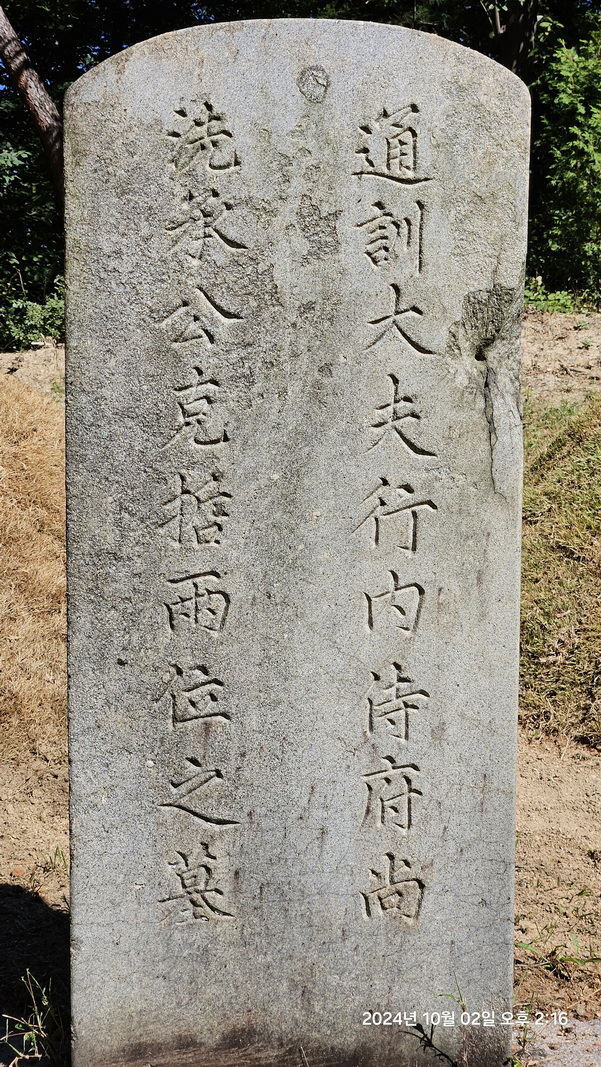 通訓大夫行内侍府尚
洗承公克括兩位之墓
2024년 10월 02일 오후 2:16